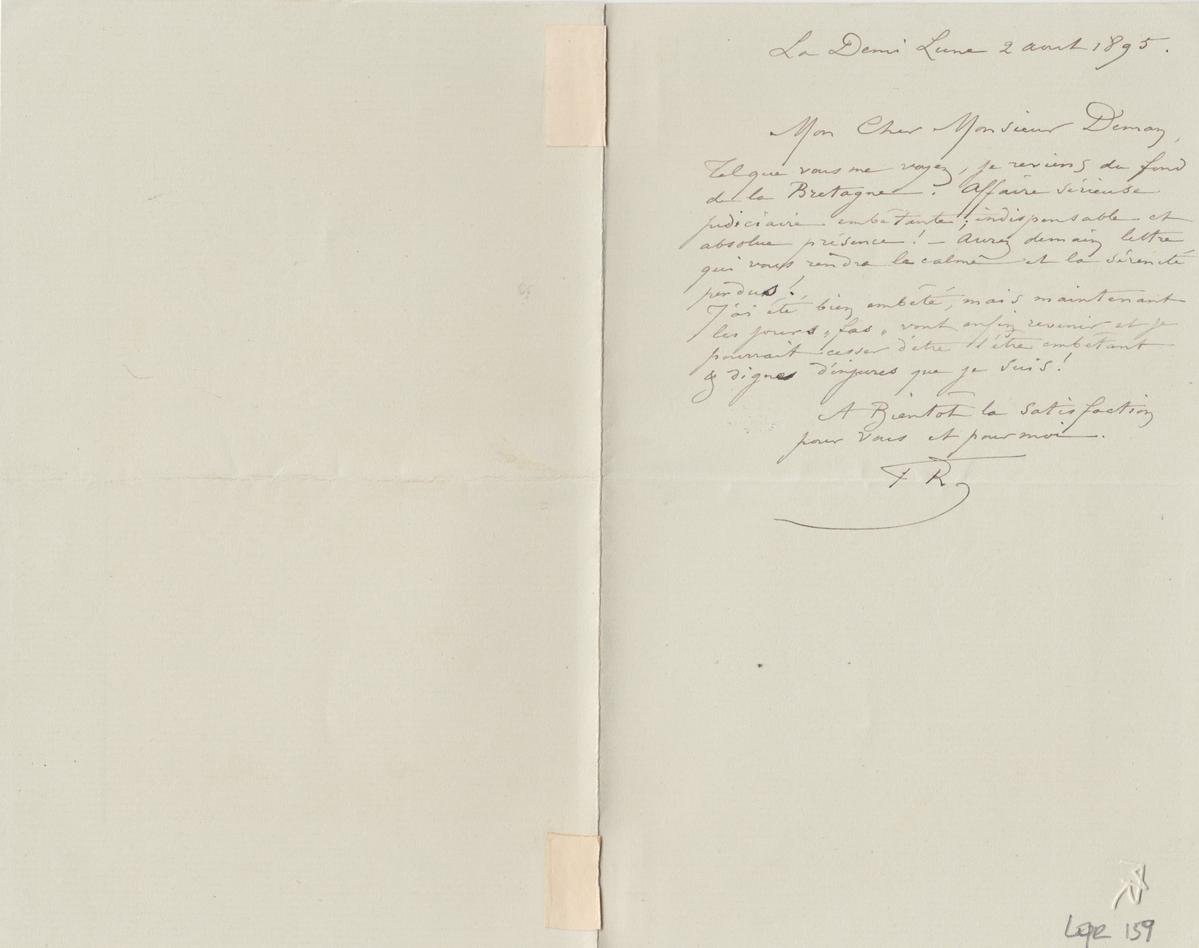 La Demi Lune 2 aout 1895.
Mon Cher Monsieur Deman,
Tel que vous me voyez, je reviens du fond
de la Bretagne! Affaire sérieuse
judiciaire embêtante; indispensable et
absolue présence! – Aurez demain lettre
qui vous rendra le calme et la sérénité
perdus!
J'ai été bien embêté, mais maintenant
les jours „fas„ vont enfin revenir et je
pourrait cesser d'être l'être embêtant
& digne d'injures que je suis!
A Bientôt la satisfaction
pour vous et pour moi.
F R
159